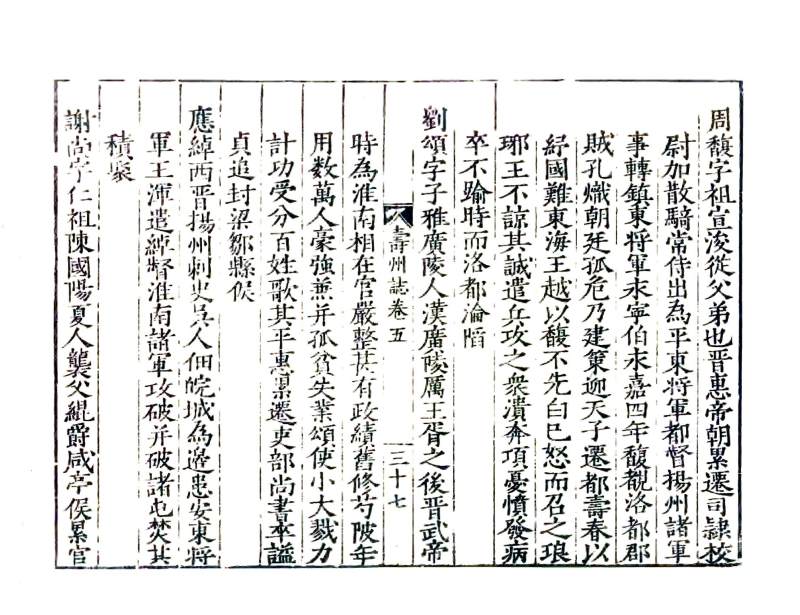 周馥字祖宣浚從父弟也晋惠帝朝累遷司隷校
尉加散騎常侍出為平東將軍都督揚州諸軍
事轉鎮東将軍永寧伯永嘉四年馥覩洛都郡
賊孔熾朝廷孤危乃建策迎天子遷都壽春以
紓國難東海王越以馥不先白已怒而召之琅
琊王不諒其誠遣兵攻之衆潰奔項憂憤發病
卒不踰時而洛都淪䧟
劉頌字子雅廣陵人漢廣陵厲王胥之後晋武帝
壽州誌卷五
三十七
時為淮南相在官嚴整甚有政績舊修芍陂年
用数萬人豪強兼并孤貧失業頌使小大戮力
計功受分百姓歌其平惠累遷吏部尚書卒謚
貞追封梁鄒縣侯
應綽西晋揚州刺史吳人佃皖城為邊患安東將
軍王渾遣綽督淮南諸軍攻破并破諸屯焚其
積聚
謝尚字仁祖陳國陽夏人襲父鯤爵咸亭侯累官